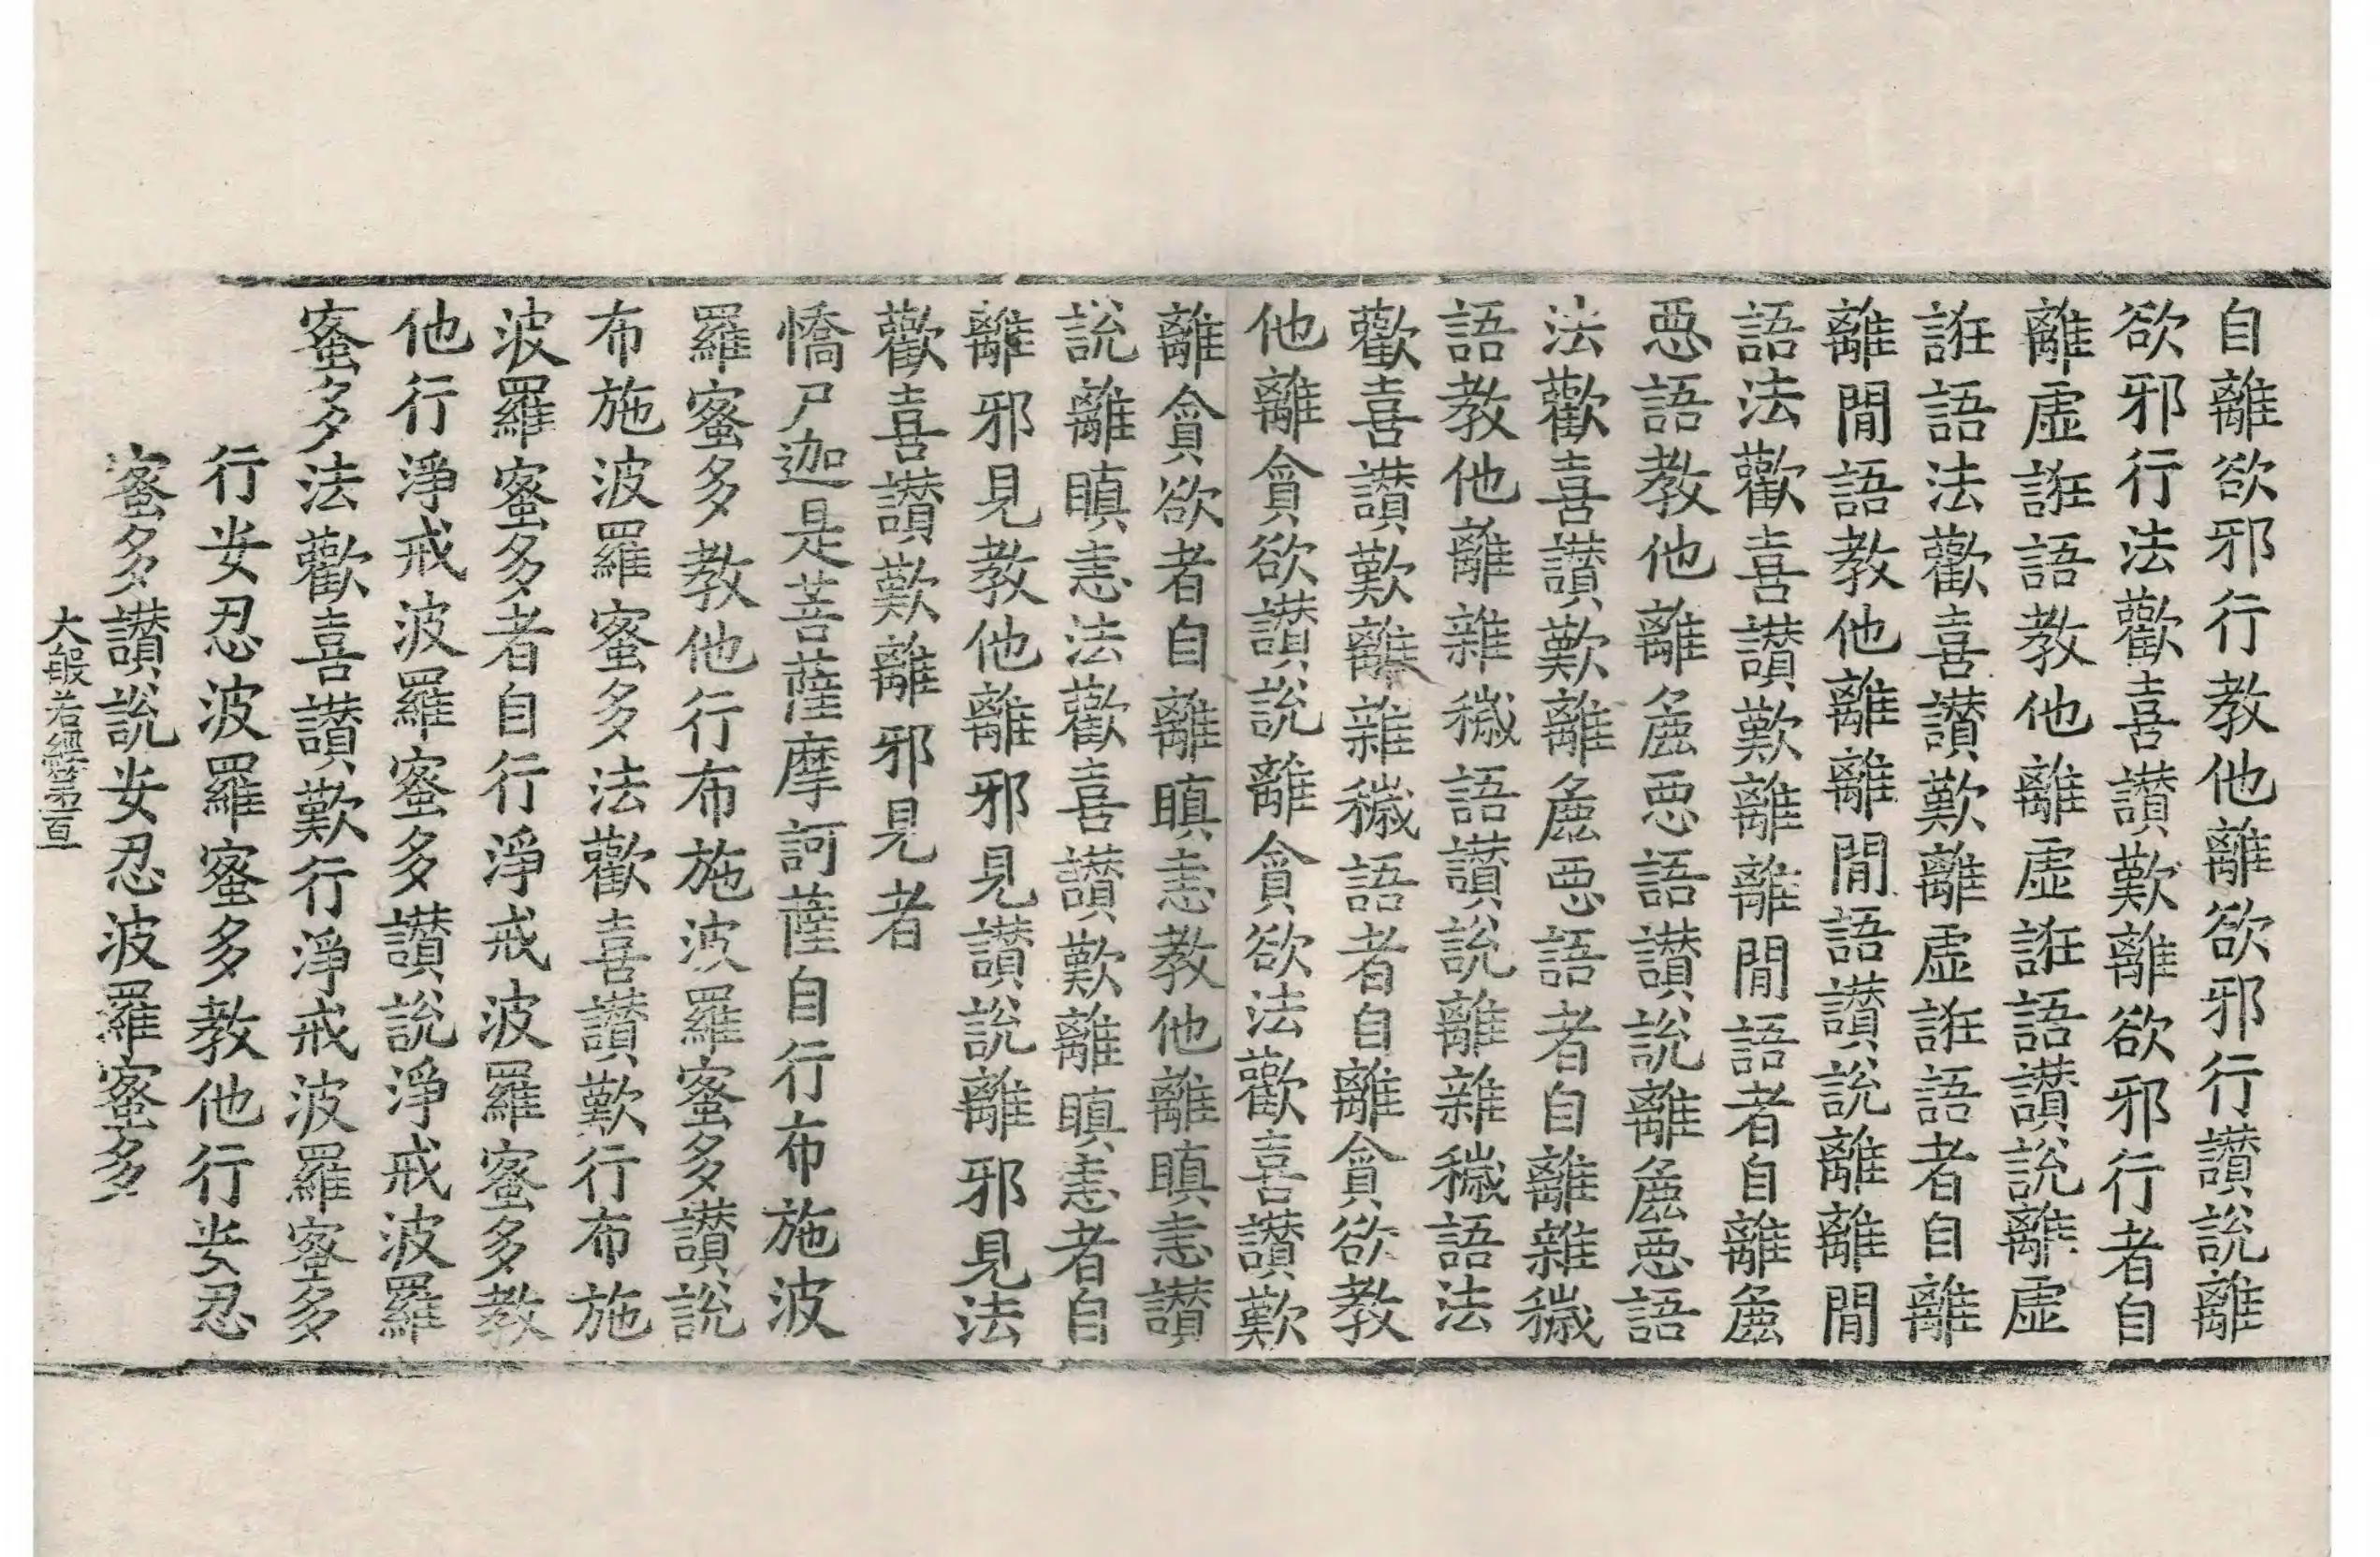 自離欲邪行教他離欲邪行讃說離
欲邪行法歡喜讃歎離欲邪行者自
離虛誑語教他離虛誑語讃說離虛
誑語法歡喜讃歎離虛誑語者自離
離閒語教他離離閒語讃說離離閒
語法歡喜讃歎離離閒語者自離麁
惡語教他離麁惡語讃說離麁惡語
法歡喜讃歎離麁惡語者自離雜穢
語教他離雜穢語讃說離雜穢語法
歡喜讃歎離雜穢語者自離貪欲教
他離貪欲讃說離貪欲法歡喜讃歎
離貪欲者自離瞋恚教他離瞋恚讃
說離瞋恚法歡喜讃歎離瞋恚者自
離邪見教他離邪見讃說離邪見法
歡喜讃歎離邪見者
憍尸迦是菩薩摩訶薩自行布施波
羅蜜多教他行布施波羅蜜多讃說
布施波羅蜜多法歡喜讃歎行布施
波羅蜜多者自行淨戒波羅蜜多教
他行淨戒波羅蜜多讃說淨戒波羅
蜜多法歡喜讃歎行淨戒波羅蜜多
行安忍波羅蜜多教他行安忍
蜜多讃說安忍波羅蜜多
大般若經第一百